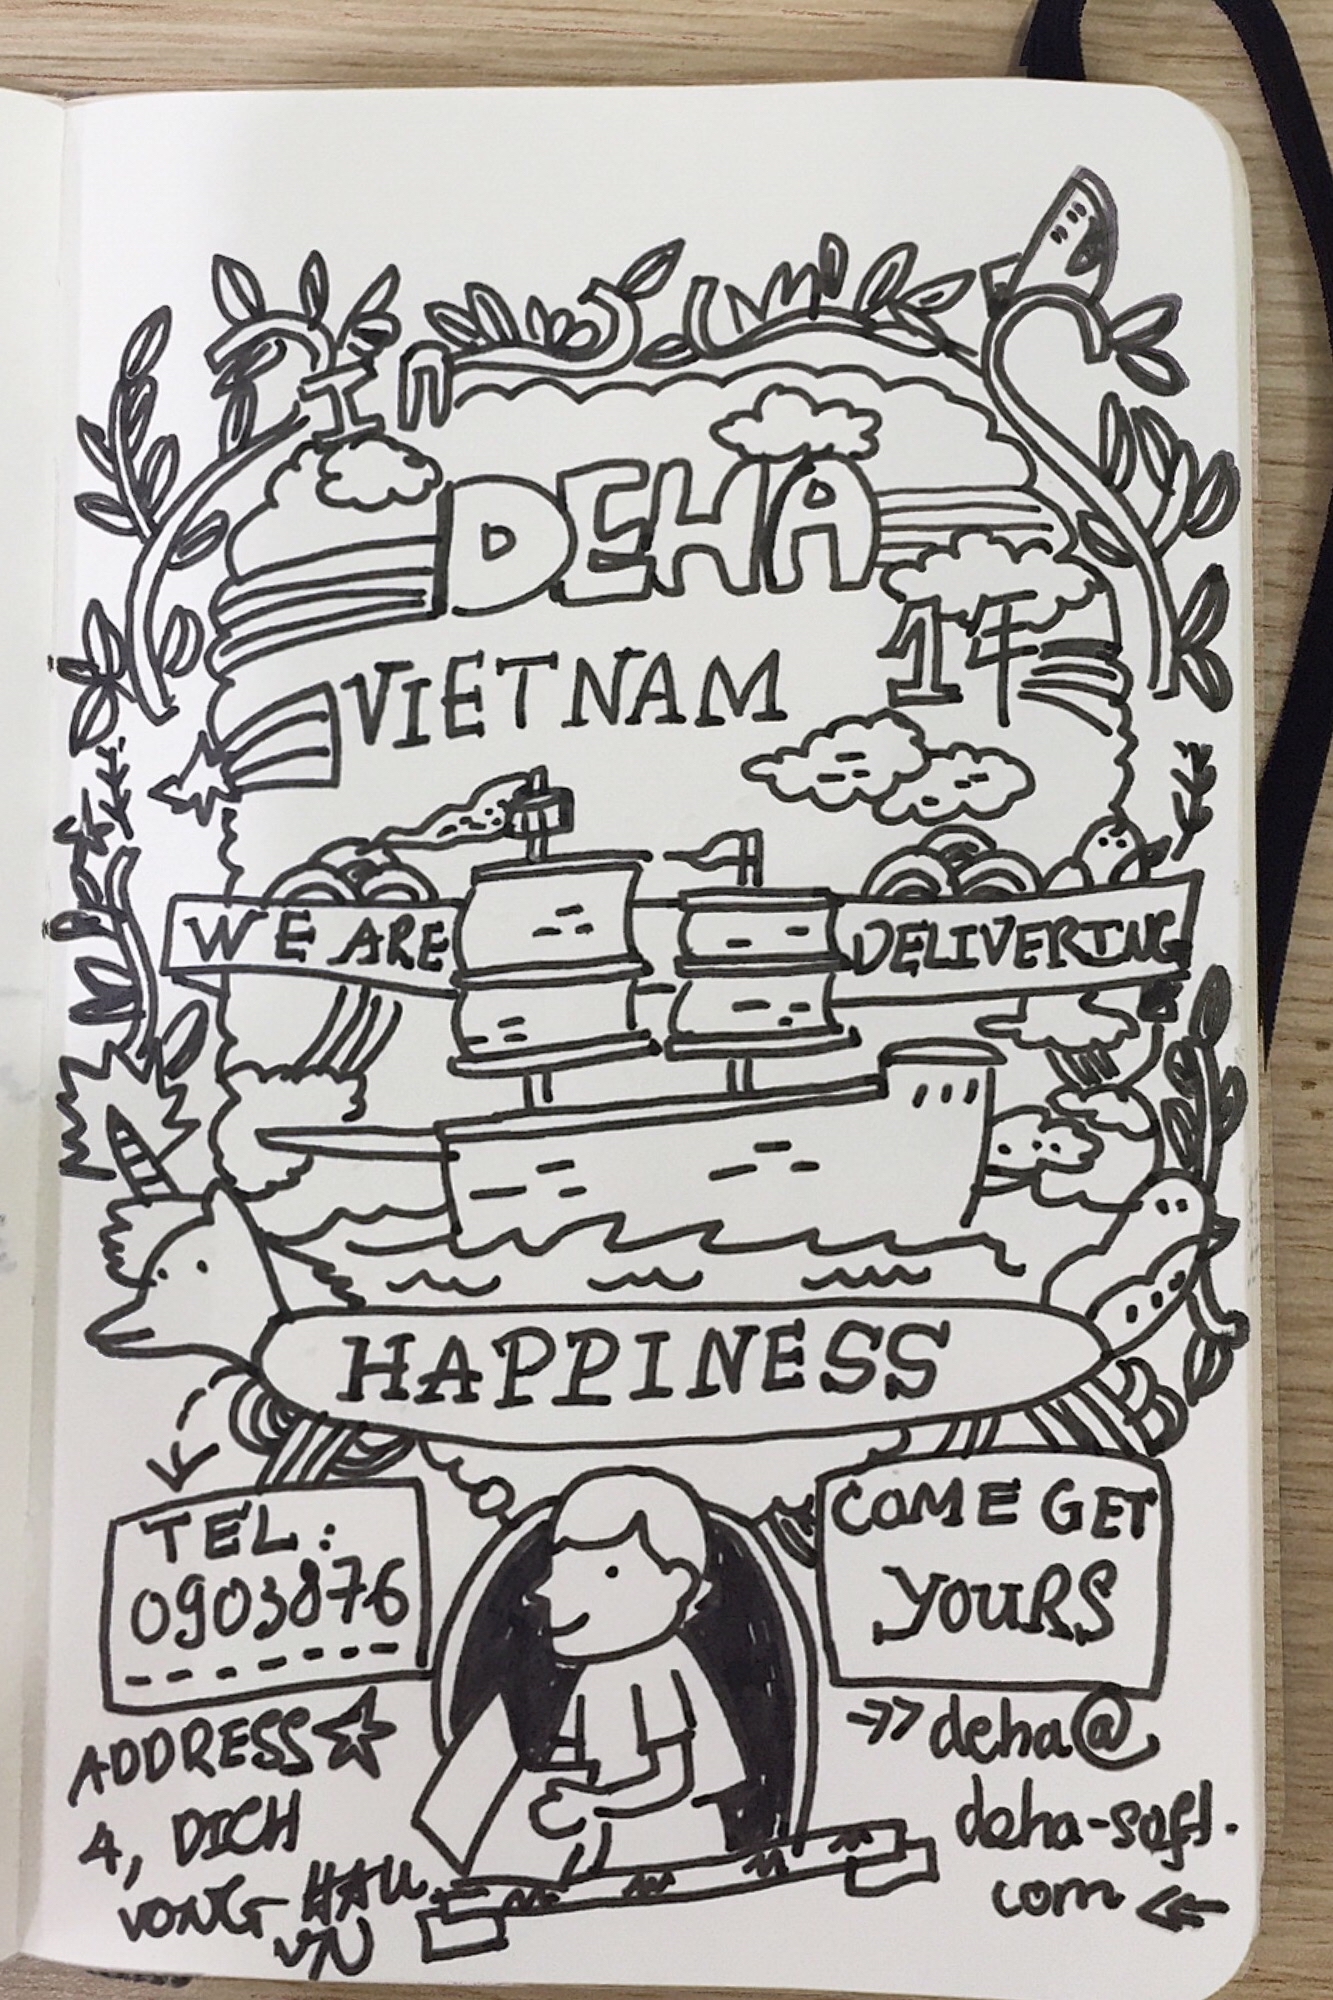 In
DEHA
14
VIETNAM
WE ARE DELIVERING
HAPPINESS
TEL:
0903876
COME GET
YOURS
ADDRESS
4, DICH
VONG HAU
VN
deha@
deha-soft.
com